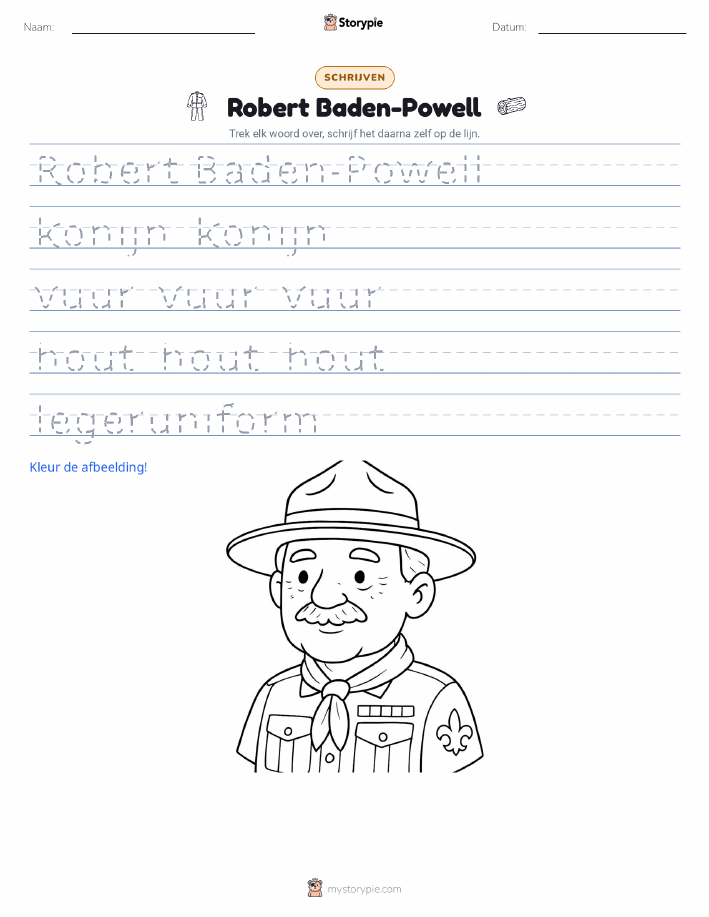 Naam:
Storypie
Datum:
SCHRIJVEN
Robert Baden-Powell
Trek elk woord over, schrijf het daarna zelf op de lijn.
Robert Baden-Powell
konijn konijn
vuur vuur vuur
hout hout hout
legeruniform
Kleur de afbeelding!
mystorypie.com